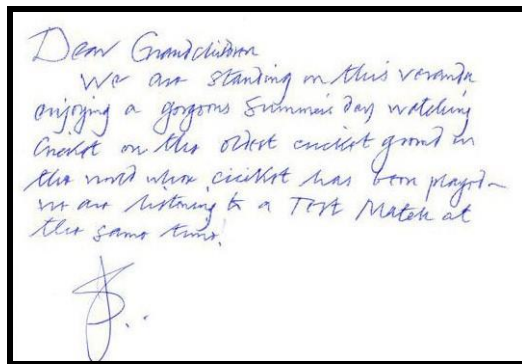 Dear Grandchildren
We are standing on this veranda
enjoying a gorgeous Summers day watching
Cricket on the oldest cricket ground in
the world where cricket has been played -
we are listening to a Test Match at
the same time!